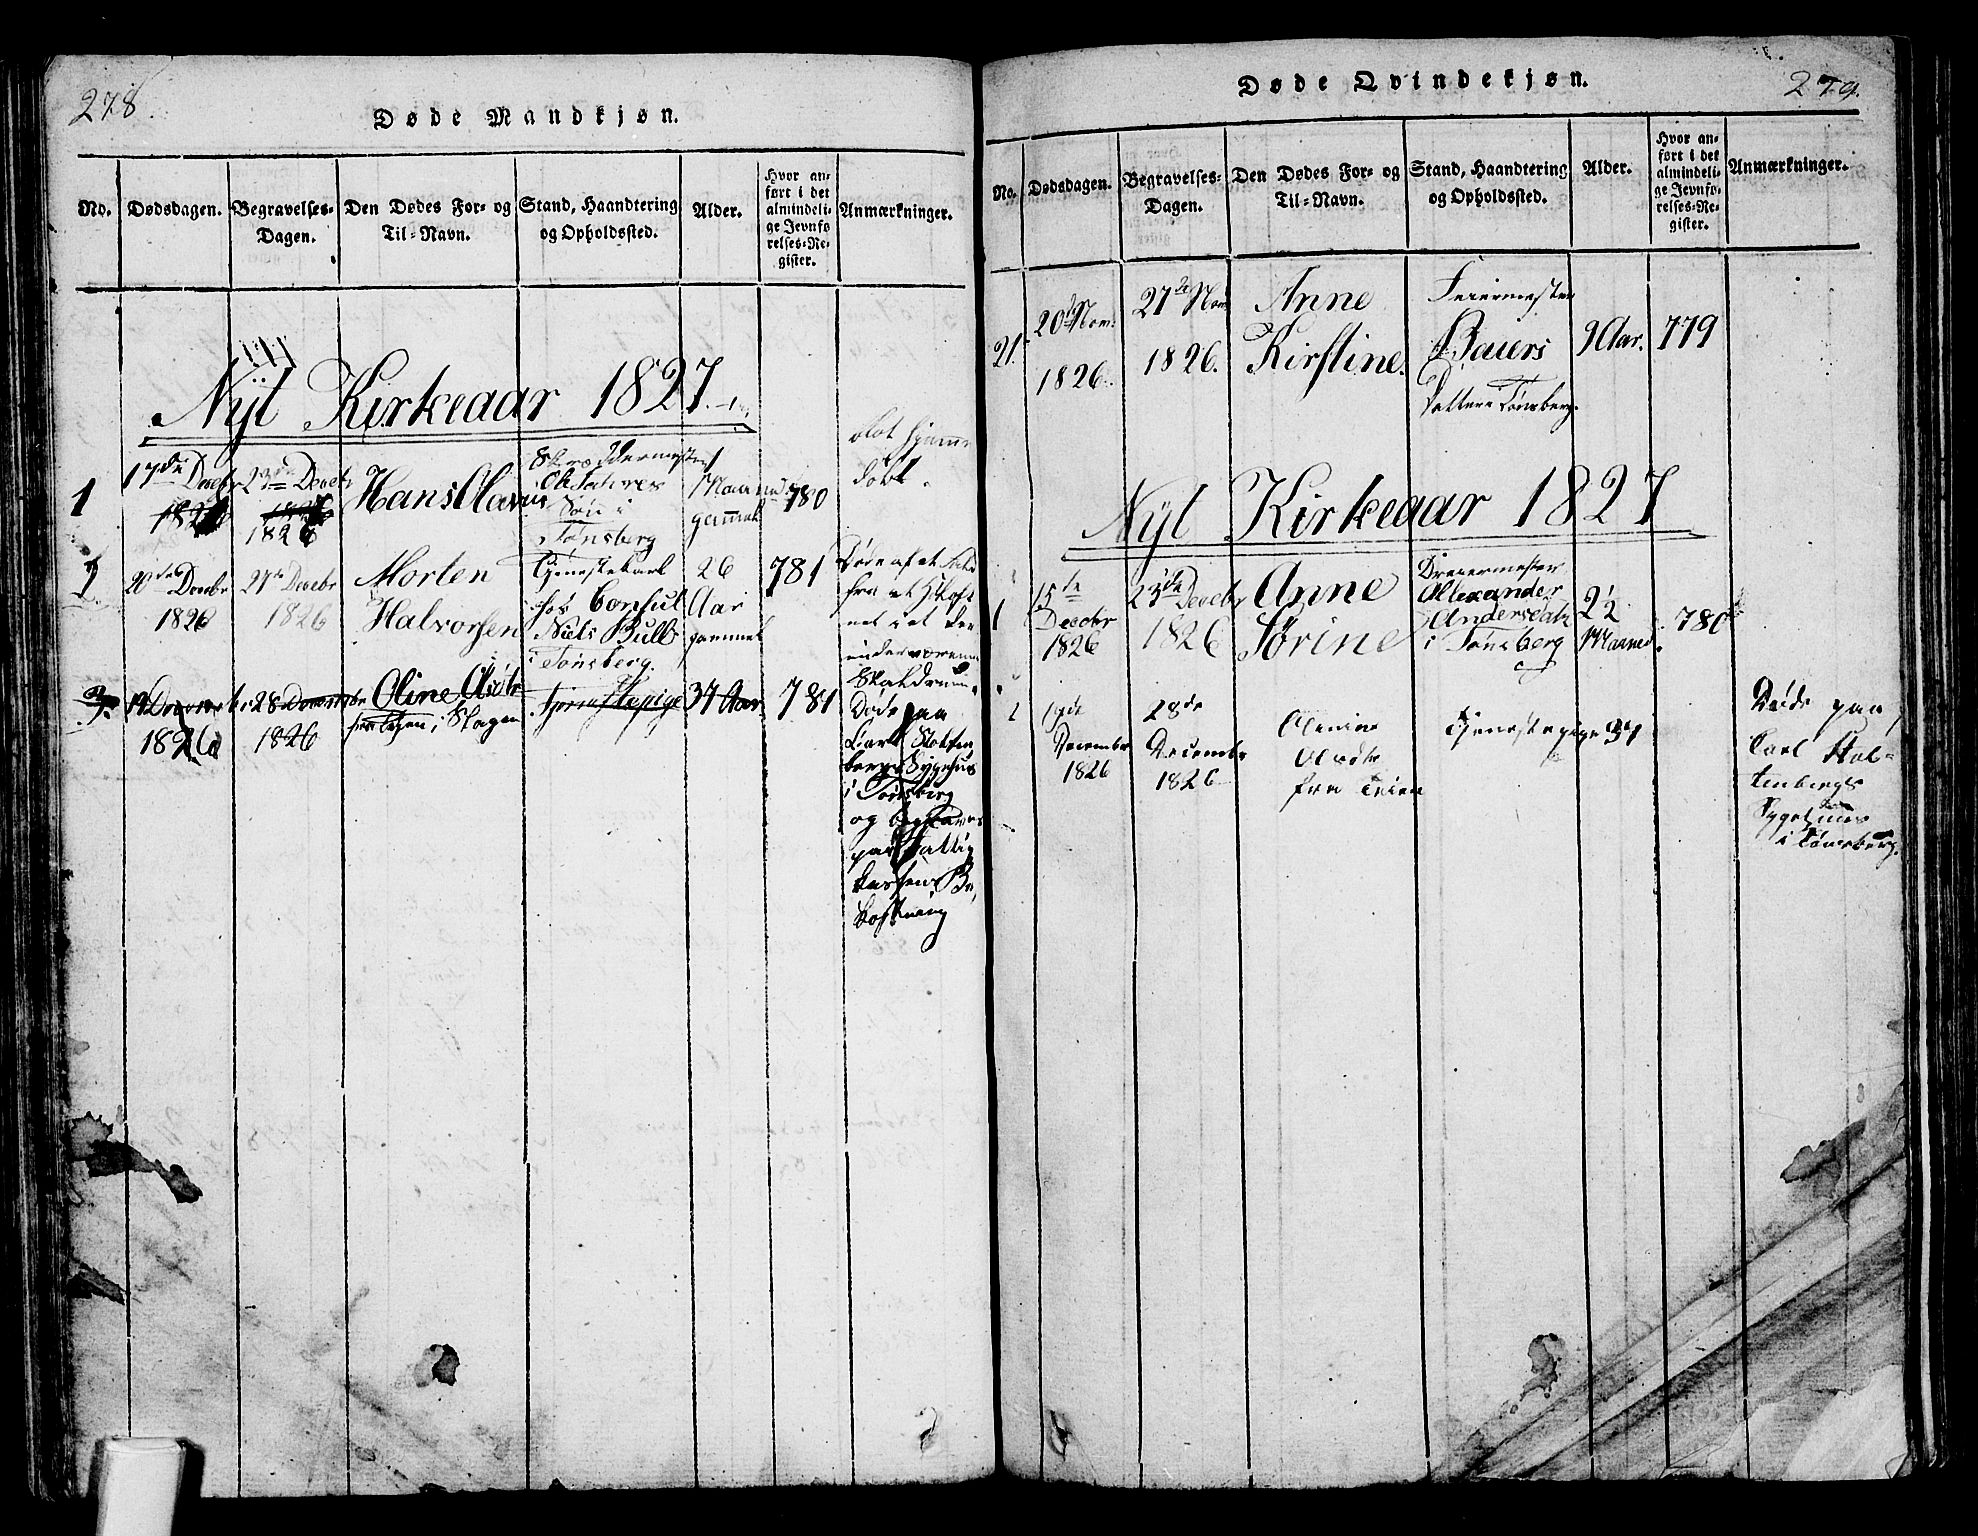 278.
Døde Mandkjøn.
No.
Dødsdagen.
Begravelses-
Dagen.
Den Dødes For- og
Til-Navn.
Stand, Haandtering
og Opholdssted.
Alder.
Hvor an-
ført i det
almindeli-
ge Jevnfø
relses-Re-
gister.
Anmærkninger.
Nÿt Kirkeaar 1827.
1
17de Decebr
1826
23de Decebr
1826
1826
Hans Olavus
Skræddermester
Søn i
Tønsberg
1 Maaned
gammel
780
døbt.
2.
20de Decebr
1826
27de Decebr
1826
Morten
Halvorsen
Tjenestekarl
hos Consul
Niels Bull
i Tønsberg.
26
Aar
gammel
781
Døde af et
fra et
3.
19 Decembr
1826
28 Decembr
1826
Oline Olsdtr
fra Teyen i Slagen
Tjenestepige
37 Aar
781
Døde paa
Carl Stolten
bergs Sygehus
i Tønsberg
og begraves
paa Fattig
kassens Be,
kostning
279.
Døde Qvindekjøn.
No.
Dødsdagen.
Begravelses-
Dagen.
Den Dødes For- og
Til-Navn.
Stand, Haandtering
og Opholdssted.
Alder.
Hvor an-
ført i det
almindeli-
ge Jevnfø-
relses-Re-
gister.
Anmærkninger.
21.
20de Nov.
1826.
27de Nov.
1826.
Anne
Kirstine.
Feiermester
Baiers
Datter i Tønsberg.
9 Aar.
779
Nÿt Kirkeaar 1827
1
15de
Decebr
1826
23de Decebr
1826
Anne
Sørine
Dreiermester
Alexander
Andersdatr
i Tønsberg
2½
Maaned.
780
2
19de
December
1826
28de
Decembr
1826
Olenine
Olsdtr
fra Teien
Tjenestepige
37
Døde paa
Carl Stol-
tenbergs
Sygehuus
i Tønsberg.